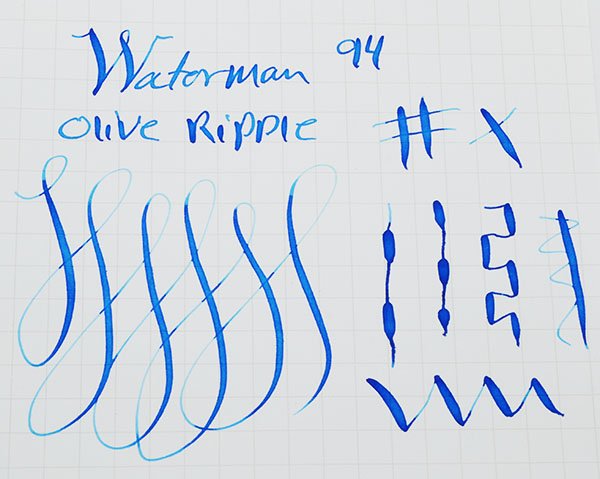 Waterman 94
Olive Ripple
# x